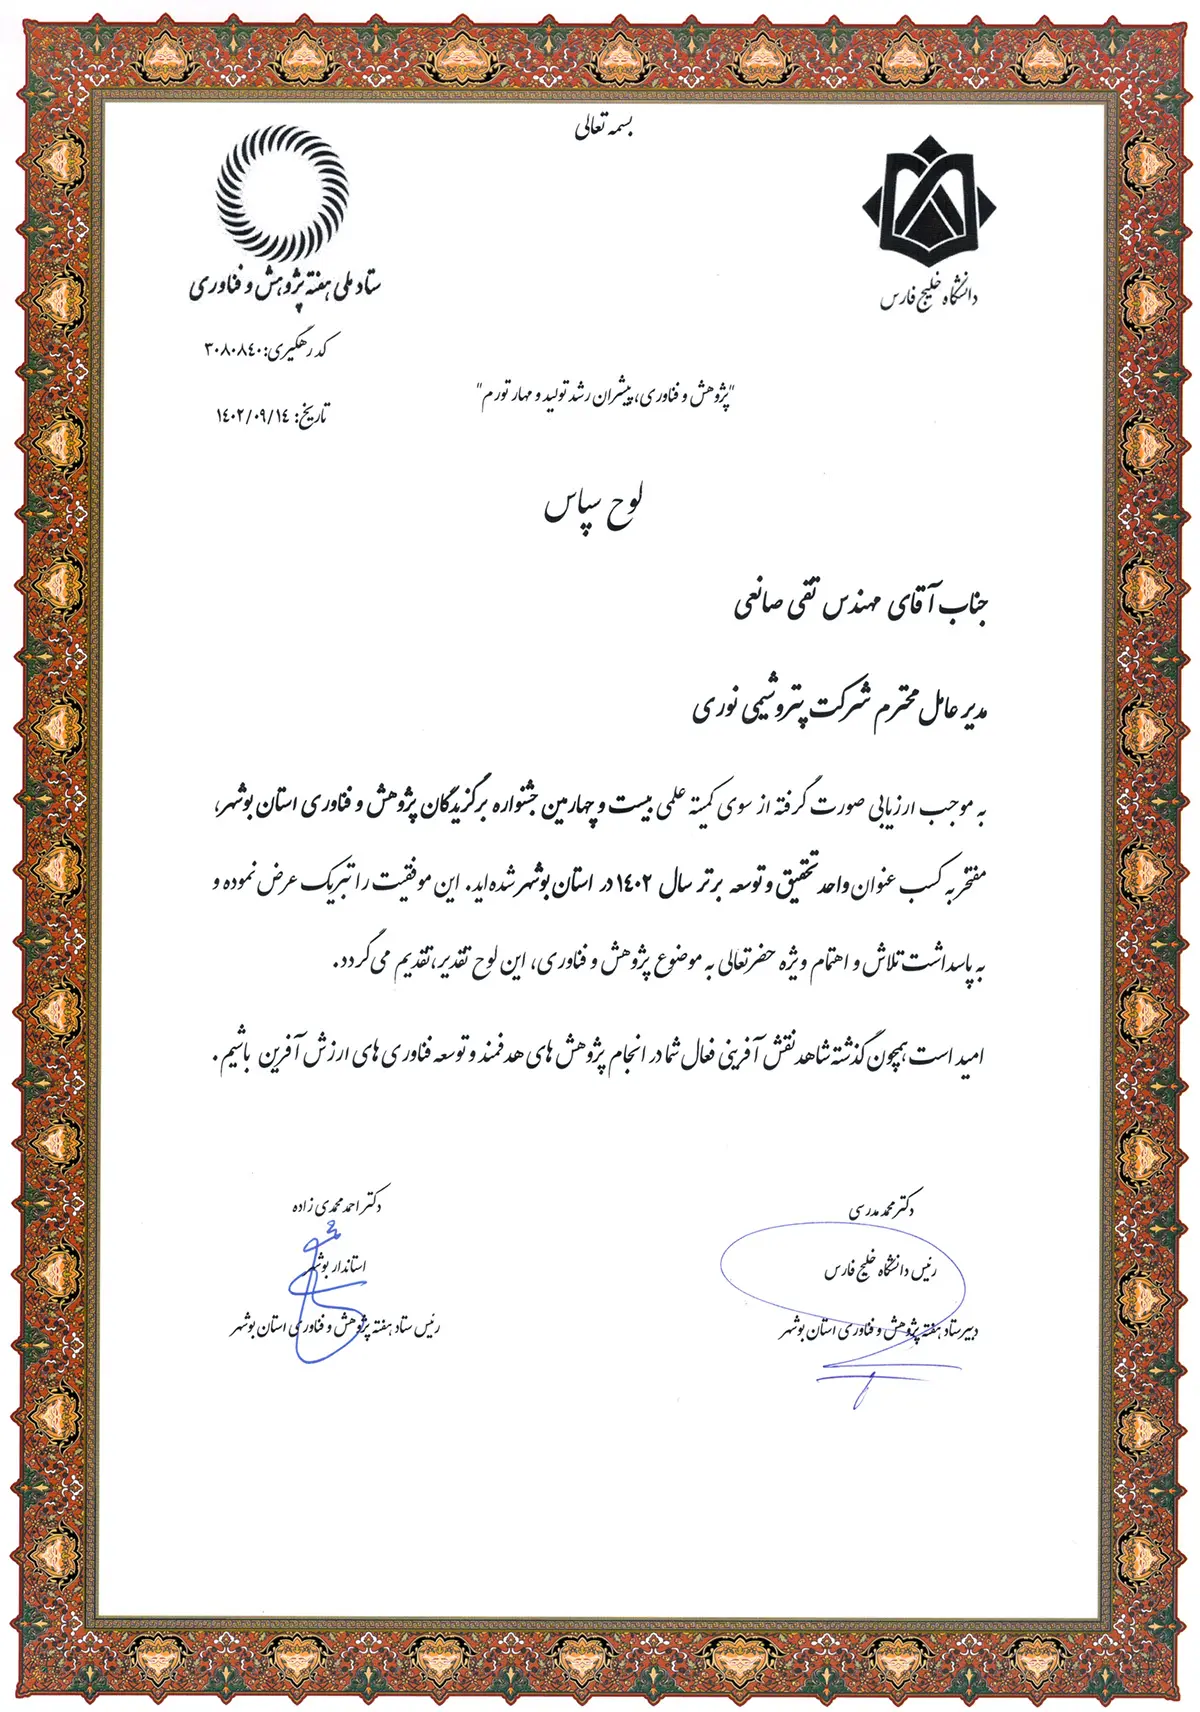 بسمه تعالی
دانشگاه خلیج فارس
ستاد ملی هفته پژوهش و فناوری
کد رهگیری: ۳۰۸۰۸٤۰
تاریخ: ۱٤۰۲/۰۹/۱٤
"پژوهش و فناوری، پیشران رشد تولید و مهار تورم"
لوح سپاس
جناب آقای مهندس تقی صانعی
مدیر عامل محترم شرکت پتروشیمی نوری
به موجب ارزیابی صورت گرفته از سوی کمیته علمی بیست و چهارمین جشنواره برگزیدگان پژوهش و فناوری استان بوشهر،
مفتخر به کسب عنوان واحد تحقیق و توسعه برتر سال ۱٤۰۲ در استان بوشهر شده اید. این موفقیت را تبریک عرض نموده و
به پاسداشت تلاش و اهتمام ویژه حضرتعالی به موضوع پژوهش و فناوری، این لوح تقدیر، تقدیم می گردد.
امید است همچون گذشته شاهد نقش آفرینی فعال شما در انجام پژوهش های هدفمند و توسعه فناوری های ارزش آفرین باشیم.
دکتر محمد مدرسی
رئیس دانشگاه خلیج فارس
دبیر ستاد هفته پژوهش و فناوری استان بوشهر
دکتر احمد محمدی زاده
استاندار بوشهر
رئیس ستاد هفته پژوهش و فناوری استان بوشهر